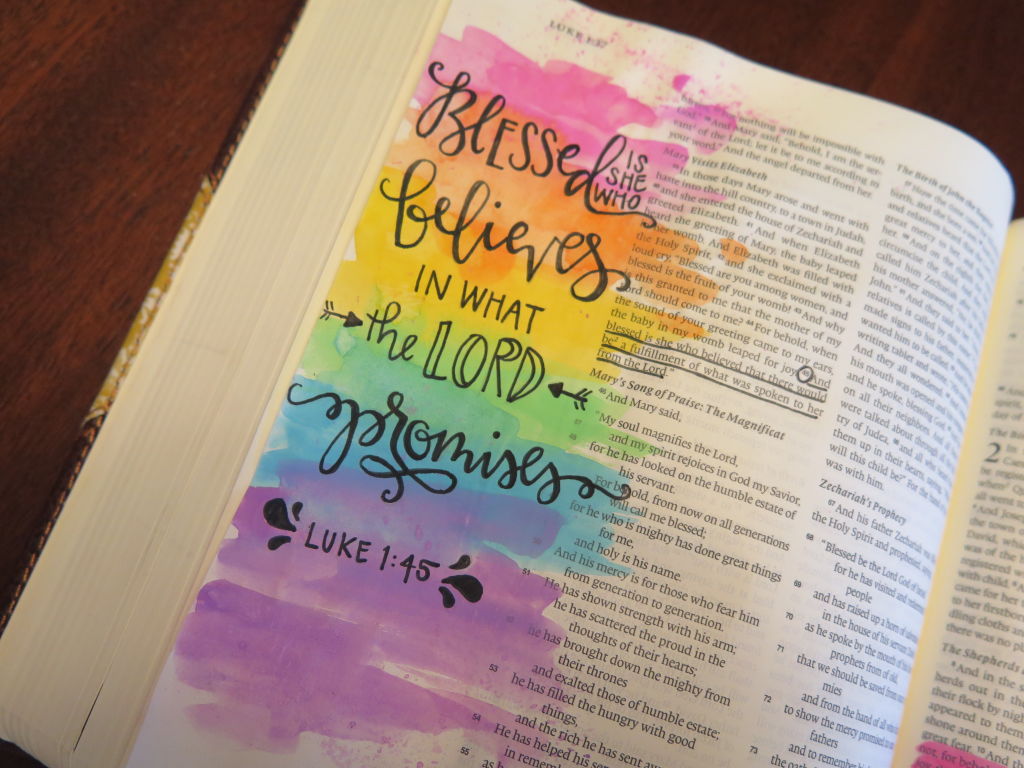 LUKE 1:37
BLESSED IS
SHE
WHO
believes
IN WHAT
the LORD
promises
LUKE 1:45
nothing will be impossible with
God." 38 And Mary said, "Behold, I am the ser-
vant of the Lord; let it be to me according to
your word." And the angel departed from her.
Mary Visits Elizabeth
39 In those days Mary arose and went with
haste into the hill country, to a town in Judah,
40 and she entered the house of Zechariah and
greeted Elizabeth. 41 And when Elizabeth
heard the greeting of Mary, the baby leaped
in her womb. And Elizabeth was filled with
the Holy Spirit, 42 and she exclaimed with a
loud cry, "Blessed are you among women, and
blessed is the fruit of your womb! 43 And why
is this granted to me that the mother of my
Lord should come to me? 44 For behold, when
the sound of your greeting came to my ears,
the baby in my womb leaped for joy. 45 And
blessed is she who believed that there would
be a fulfillment of what was spoken to her
from the Lord."
Mary's Song of Praise: The Magnificat
46 And Mary said,
"My soul magnifies the Lord,
47 and my spirit rejoices in God my Savior,
48 for he has looked on the humble estate of
his servant.
For behold, from now on all generations
will call me blessed;
for he who is mighty has done great things
for me,
and holy is his name.
50 And his mercy is for those who fear him
from generation to generation.
51 He has shown strength with his arm;
he has scattered the proud in the
thoughts of their hearts;
he has brought down the mighty from
their thrones
and exalted those of humble estate;
53 he has filled the hungry with good
things,
and the rich he has sent
54 He has helped his
in remem
55 as h
The Birth of John the
57 Now the time
birth, and she bore
and relatives heard
great mercy to her, and
her. 59 And on the
circumcise the child.
called him Zechariah
his mother answered
John." 61 And they
relatives is called by
made signs to his father
wanted him to be called.
writing tablet and wrote,
And they all wondered.
his mouth was opened and
and he spoke, blessing God.
on all their neighbors. And
were talked about through
try of Judea, 66 and all who
them up in their hearts, saying,
will this child be?" For the hand
was with him.
Zechariah's Prophecy
67 And his father Zechariah was
the Holy Spirit and prophesied, saying,
68 "Blessed be the Lord God of
for he has visited and redeemed
people
69 and has raised up a horn of salvation
in the house of his servant
70 as he spoke by the mouth of his
prophets from of old,
71 that we should be saved from
mies
and from the hand of all who
72 to show the mercy promised to
fathers
and to remember his
73 the oath
The Bi
2
The Shepherds
8 And in the s
herds out in th
their flock by nigh
appeared to them
shone around them
great fear. 10 And th
not, for beho